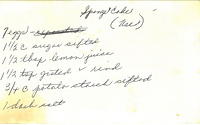 Sponge Cake
(Use)
7 eggs - separated
1 1/2 C sugar sifted
1 1/2 tbsp lemon juice
1 1/2 tsp grated " rind
3/4 C potato starch sifted
1 dash salt